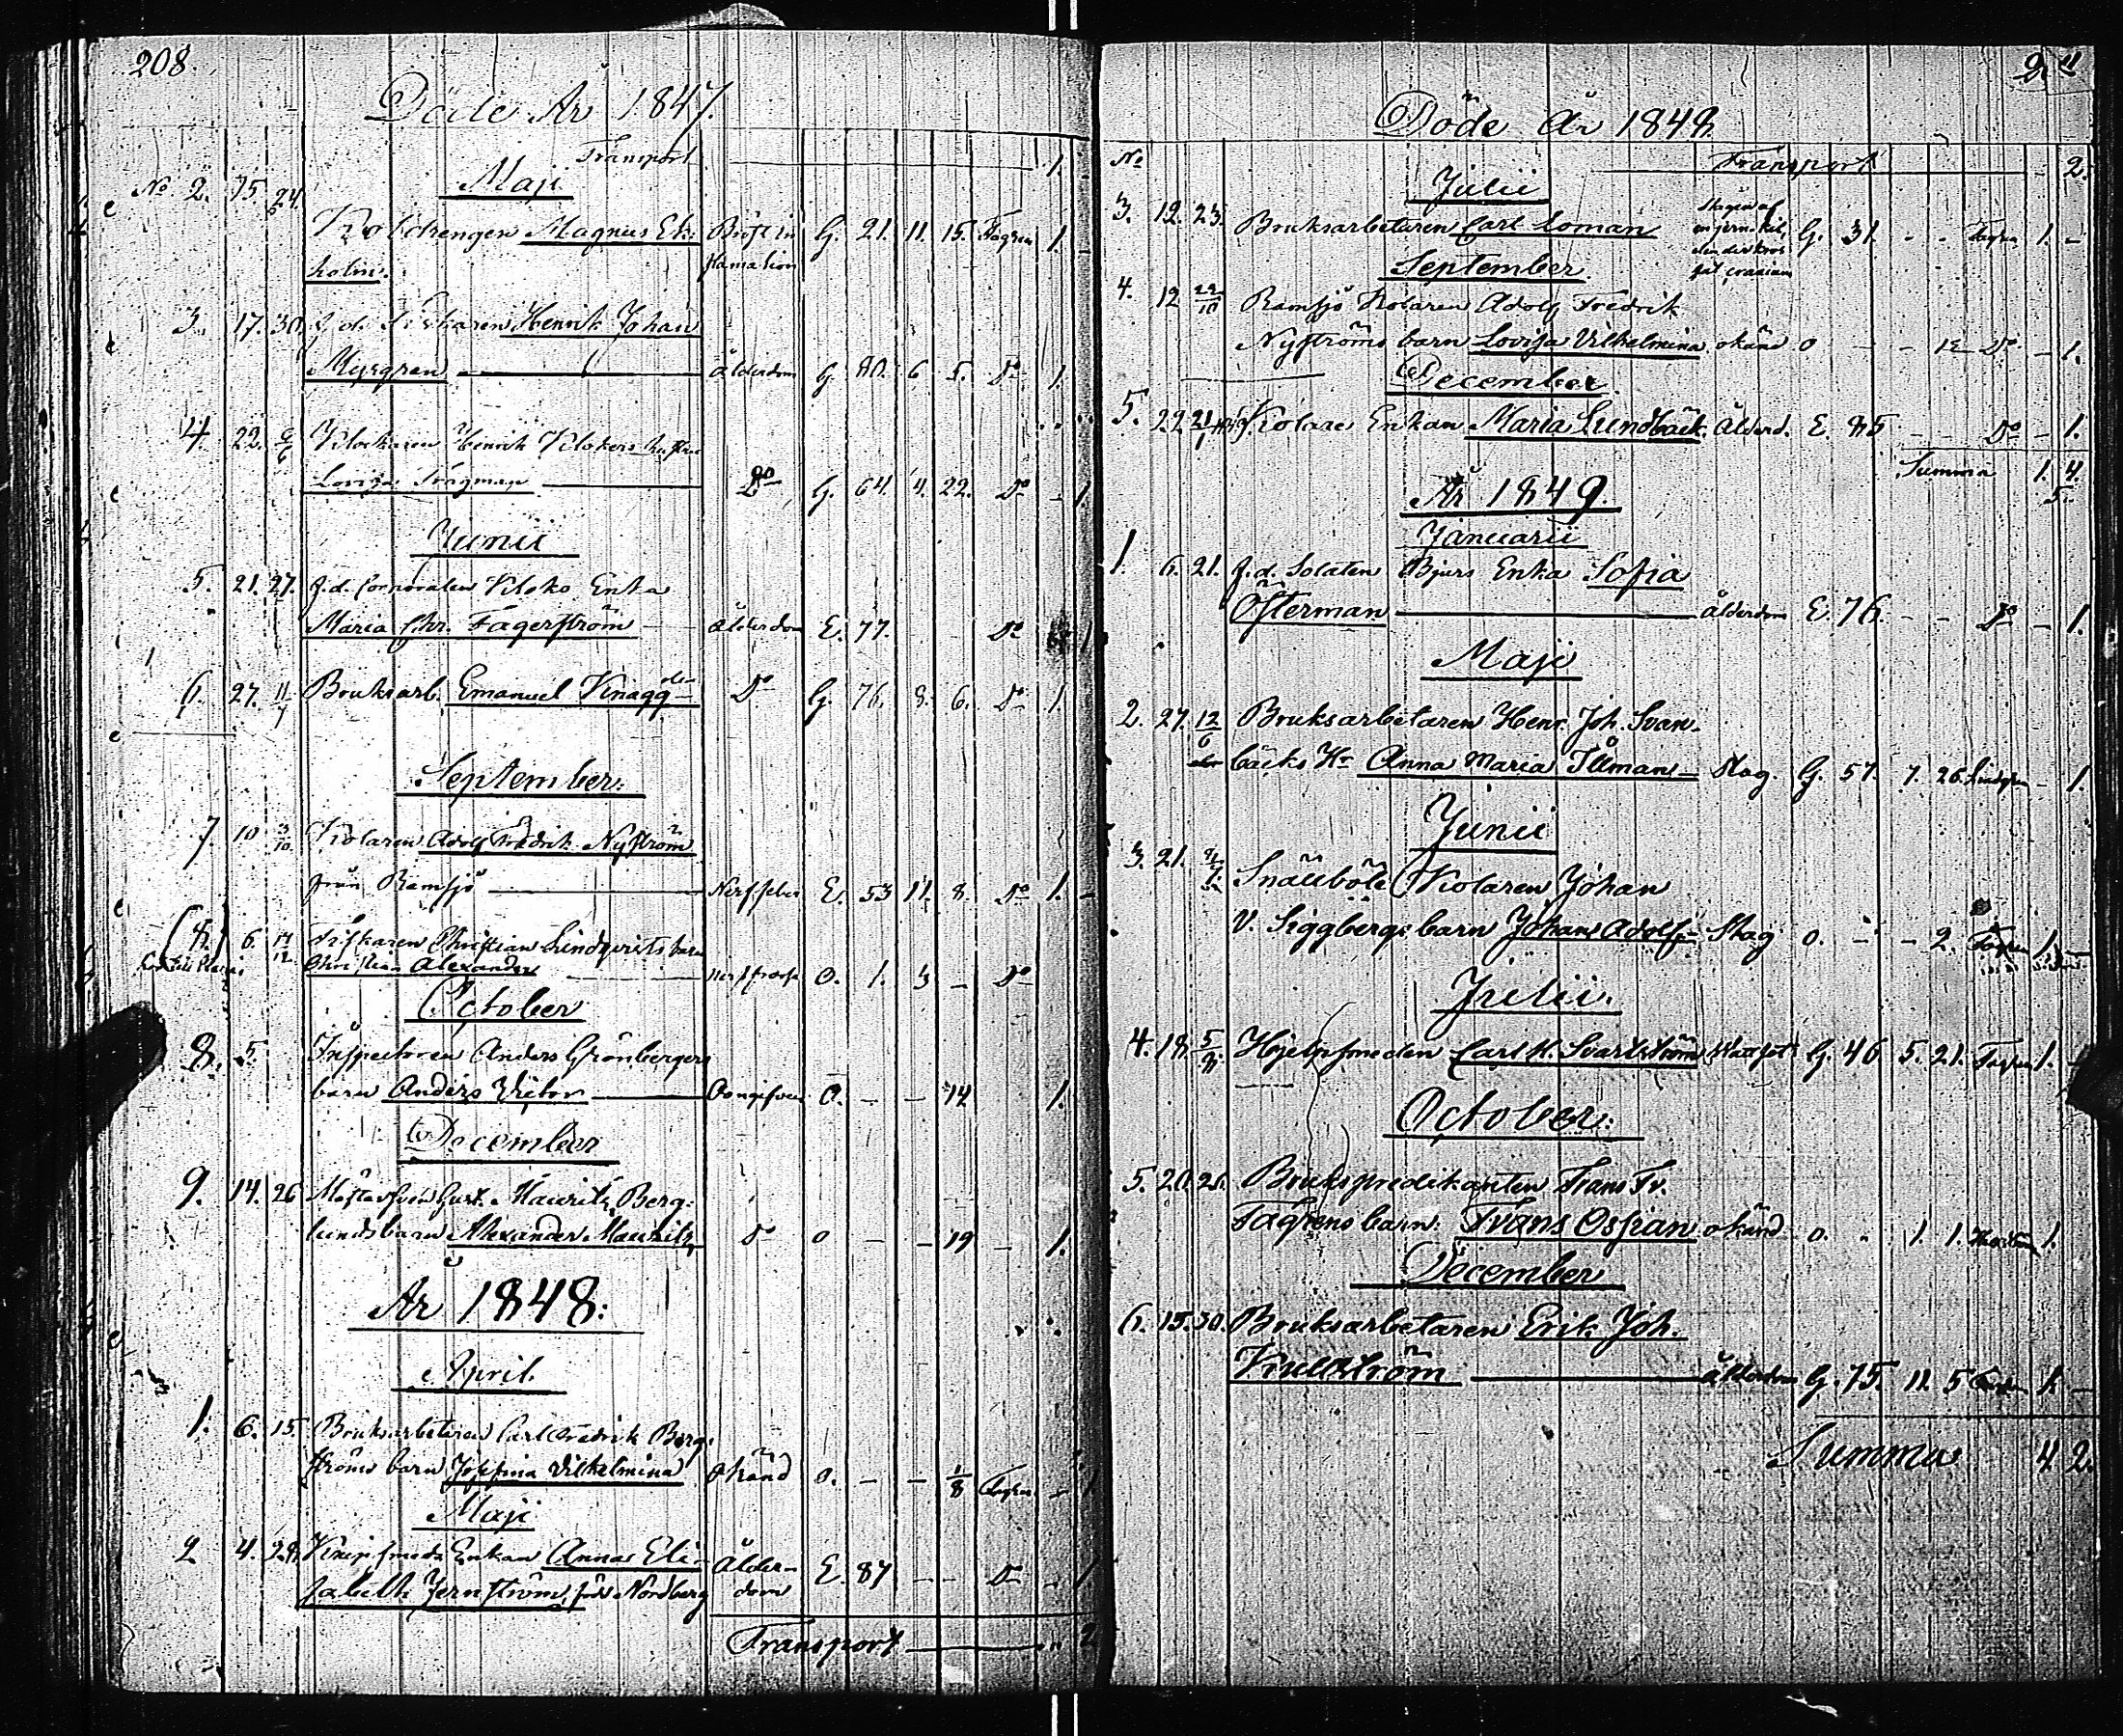 208.
Döde År 1847.
Transport 1.
Maji
No 2. 15. 24. Magnus Ek- G. 21. 11. 15. 1.
holm.
3. 17. 30. Henrik Johan
Myrgren ålderdom G. 80. 6 5. Do 1.
4. 22. 6/6 Klockaren Henrik Klockers hustru
Lovisa Do G. 64. 4. 22. Do - 1.
Junii
5. 21. 27. f.d. Corporalen Enka
Maria Chr. Fagerström ålderdom E. 77. Do
6. 27. 11/7 Bruksarb. Emanuel Knagg Do G. 76. 8. 6. Do 1.
September.
7. 10 3/10. Kolaren Adolf Fredrik Nyström
från Ramsjö E. 53 11. 8. Do 1. -
(8.) 6. Christian Lindqvists barn
Christian Alexander O. 1. 3 - Do
October
8. 5. Inspectoren Anders Grönbergers
barn Anders Victor O. - - 14 1.
December
9. 14. 26 Gust. Mauritz Berg-
lunds barn Alexander Mauritz Do o - - 19 - 1.
År 1848.
April.
1. 6. 15. Bruksarbetaren Carl Fredrik Berg-
ströms barn Josefina Vilhelmina Okänd o. - - 1/8 - 1
Maji
2 4. 28. Enkan Anna Eli-
sabeth Jernström, född Nordberg Ålder-
dom E. 87 - - Do - 1.
Transport 2
Döde År 1848.
No Transport 2.
Julii
3. 12. 23. Bruksarbetaren Carl Loman Slagen af
en jern kil, G. 31. - - 1. -
September
4. 12 22/10 Ramsjö Kolaren Adolf Fredrik
Nyströms barn Lovisa Vilhelmina okänd o - - 12 Do - 1.
December
5. 22 21/1 1849. Kolare Enkan Maria Lundbäck Ålderd. E. 85 - - Do - 1.
Summa 1. 4.
5.
År 1849.
Januarii
1. 6. 21. f.d. Soldaten Bjurs Enka Sofia
Österman ålderdom E. 76. - - Do - 1.
Maji
2. 27. 12/6 Bruksarbetaren Henr. Joh. Svan-
bäcks Hu Anna Maria Slag G. 57. 7. 26. - 1.
Junii
3. 21. Snäckböle Kolaren Johan
V. Siggbergs barn Johan Adolf Slag o. - - 2. 1. -
Julii.
4. 18. 5/8 Hjelpsmeden Carl H. Svartström G. 46 5. 21. 1. -
October.
5. 20. 26. Brukspredikanten Frans Fr.
barn. Frans Ossian okänd o. - 1. 1. 1.
December
6. 15. 30. Bruksarbetaren Erik Joh.
Kullström ålderdom G. 75. 11. 5 1. -
Summa 4 2.